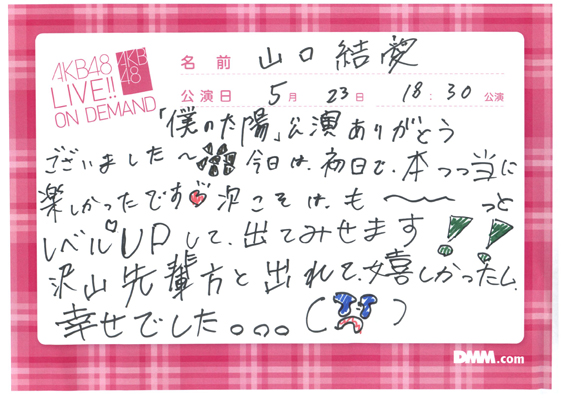 AKB48
LIVE!!
ON DEMAND
AKB
48
名前 山口 結愛
公演日 5月 23日 18:30 公演
「僕の太陽」公演ありがとう
ございました〜 今日は、初日で、本っっ当に
楽しかったです 次こそは、も〜〜っと
レベルUPして、出てみせます!!
沢山先輩方と出れて、嬉しかったし、
幸せでした。。。( )
DMM.com